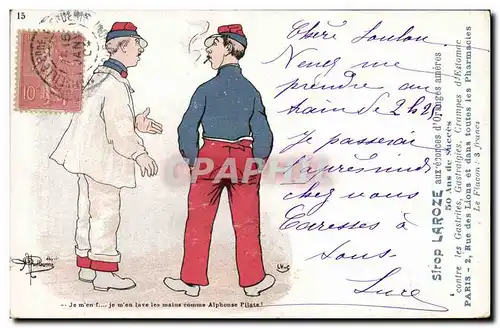 15
10
Chère Loulou
Venez me
prendre au
train de 2h25
Je passerai
l'après midi
chez vous
Caresses à
tous.
CPARAMA
- Je m'en f.... je m'en lave les mains comme Alphonse Pilate!
Sirop LAROZE aux écorces d'Oranges amères
50 Ans de Succès
contre les Gastrites, Gastralgies, Crampes d'Estomac
PARIS - 2, Rue des Lions et dans toutes les Pharmacies
Le Flacon : 3 francs